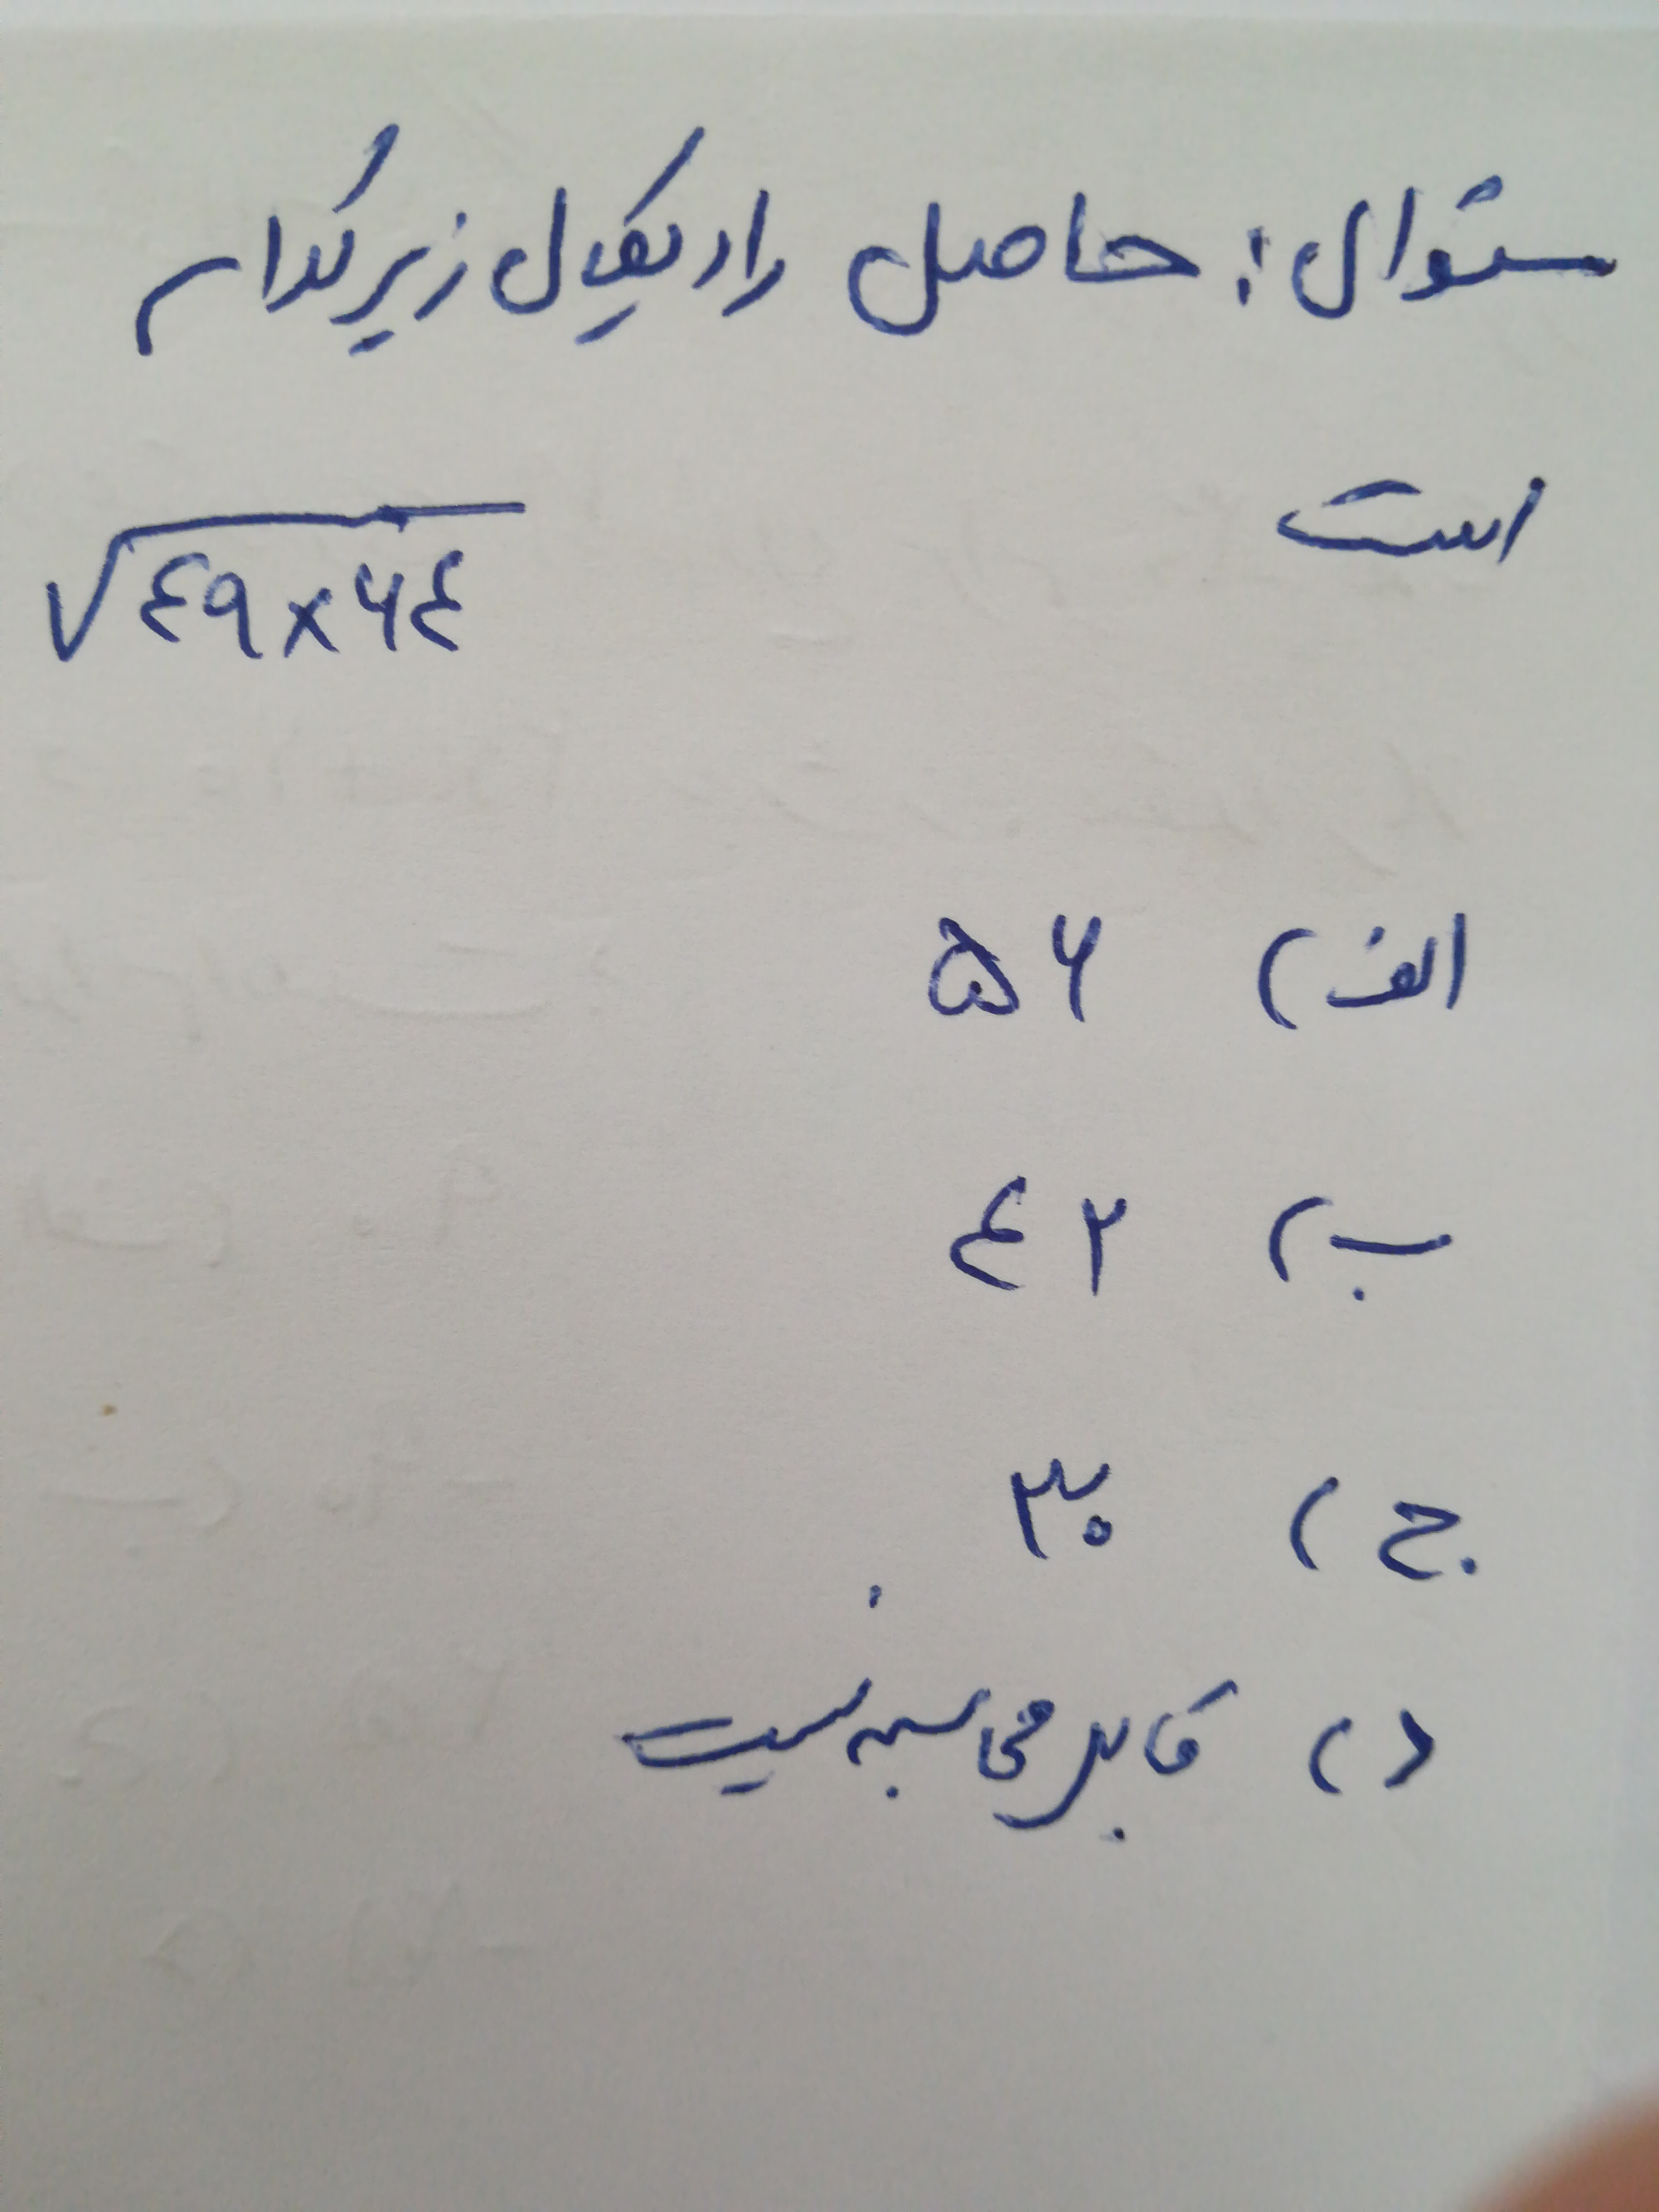 سئوال: حاصل رادیکال زیر کدام
است
√۴۹×۶۴
الف) ۵۶
ب) ۴۲
ج) ۳۰
د) قابل محاسبه نیست